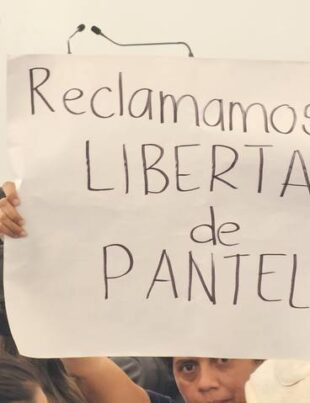 Reclamamos
LIBERTA
de
PANTEL